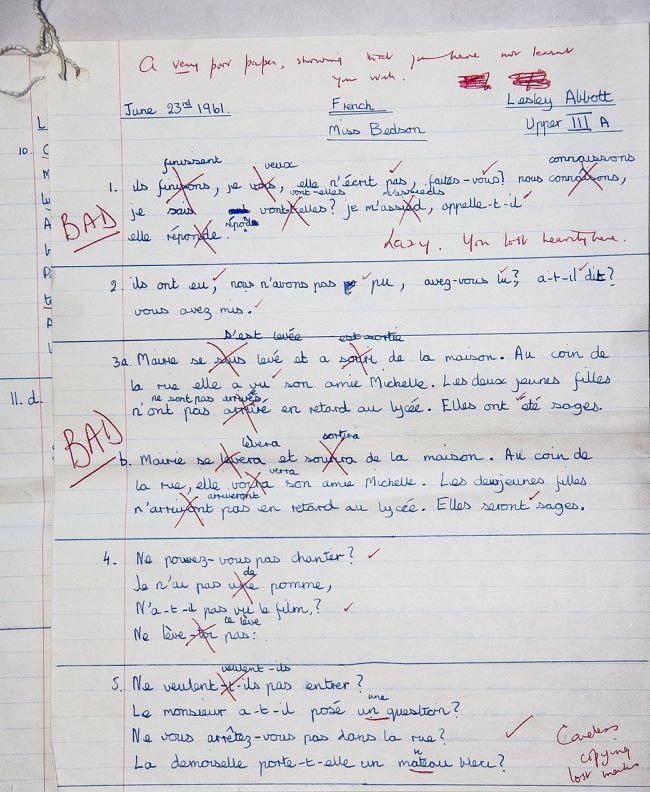 A very poor paper, showing that you have not learnt
your work.
June 23rd 1961.
French
Miss Bedson
Lesley Abbott
Upper III A
10.
finissent veux connaissons
1. ils finisons, je vas, elle n'écrit pas, faites-vous? nous connasons,
BAD
vont-elles m'assieds
je sais vont-t-elles? je m'assied, appelle-t-il
elle réponde.
Lazy. You lost heavily here.
2. ils ont eu, nous n'avons pas pu, avez-vous lu? a-t-il dit?
vous avez mis.
s'est levée est sortie
3a. Mairie se suis levé et a souri de la maison. Au coin de
la rue elle a vu son amie Michelle. Les deux jeunes filles
ne sont pas arrivées
n'ont pas arrivé en retard au lycée. Elles ont été sages.
BAD
lèvera sortira
b. Mairie se levera et sourira de la maison. Au coin de
verra
la rue, elle voira son amie Michelle. Les deuxjeunes filles
arriveront
n'arrivont pas en retard au lycée. Elles seront sages.
11. d.
4. Ne pouvez-vous pas chanter?
de
Je n'ai pas une pomme,
N'a-t-il pas vu le film,?
te lève
Ne lève-toi pas:
veulent-ils
5. Ne veulent-t-ils pas entrer?
une
Le monsieur a-t-il posé un question?
Ne vous arrêtez-vous pas dans la rue?
La demoiselle porte-t-elle un mateau bleu?
Careless
copying
lost marks